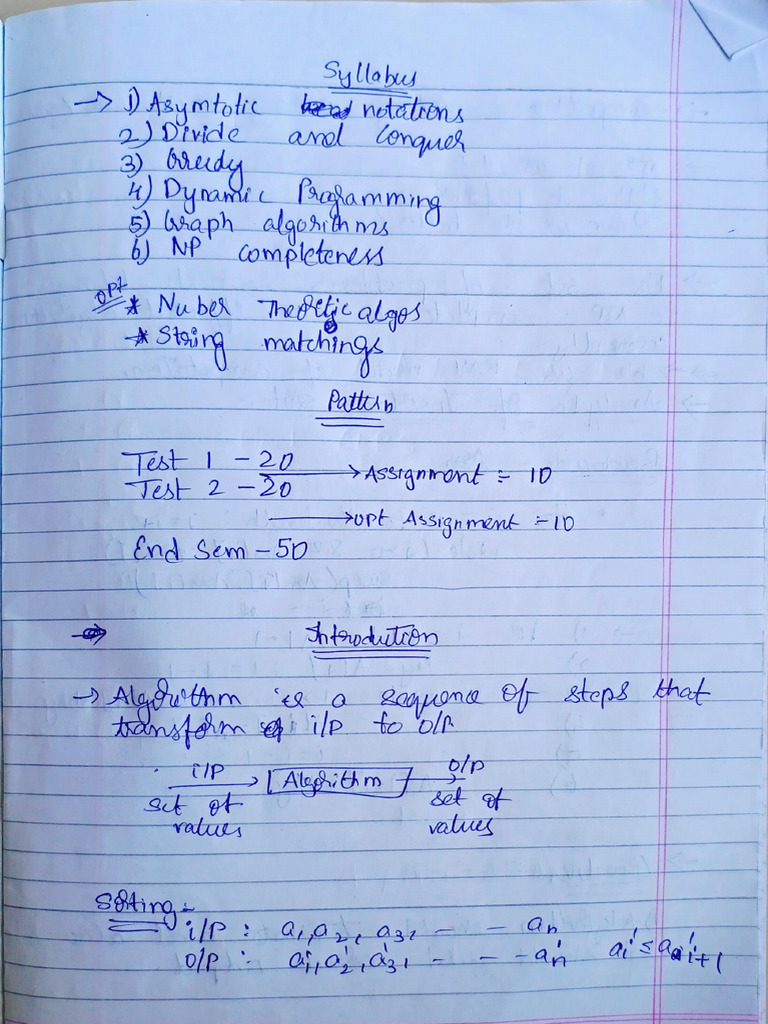 Syllabus
→ 1) Asymtotic notations
2) Divide and Conquer
3) Greedy
4) Dynamic Programming
5) Graph algorithms
6) NP completeness
opt * Nuber Theoretic algos
* String matchings
Pattern
Test 1 - 20
Test 2 - 20 → Assignment :- 10
→ opt Assignment :- 10
End Sem - 50
Introdution
→ Algorithm is a sequence of steps that
transform i/p to o/p
i/p → Algorithm → o/p
set of values
set of values
Sorting :-
i/p : a1, a2, a3, - - an
o/p : a1', a2', a3', - - - an' ai' ≤ a'i+1